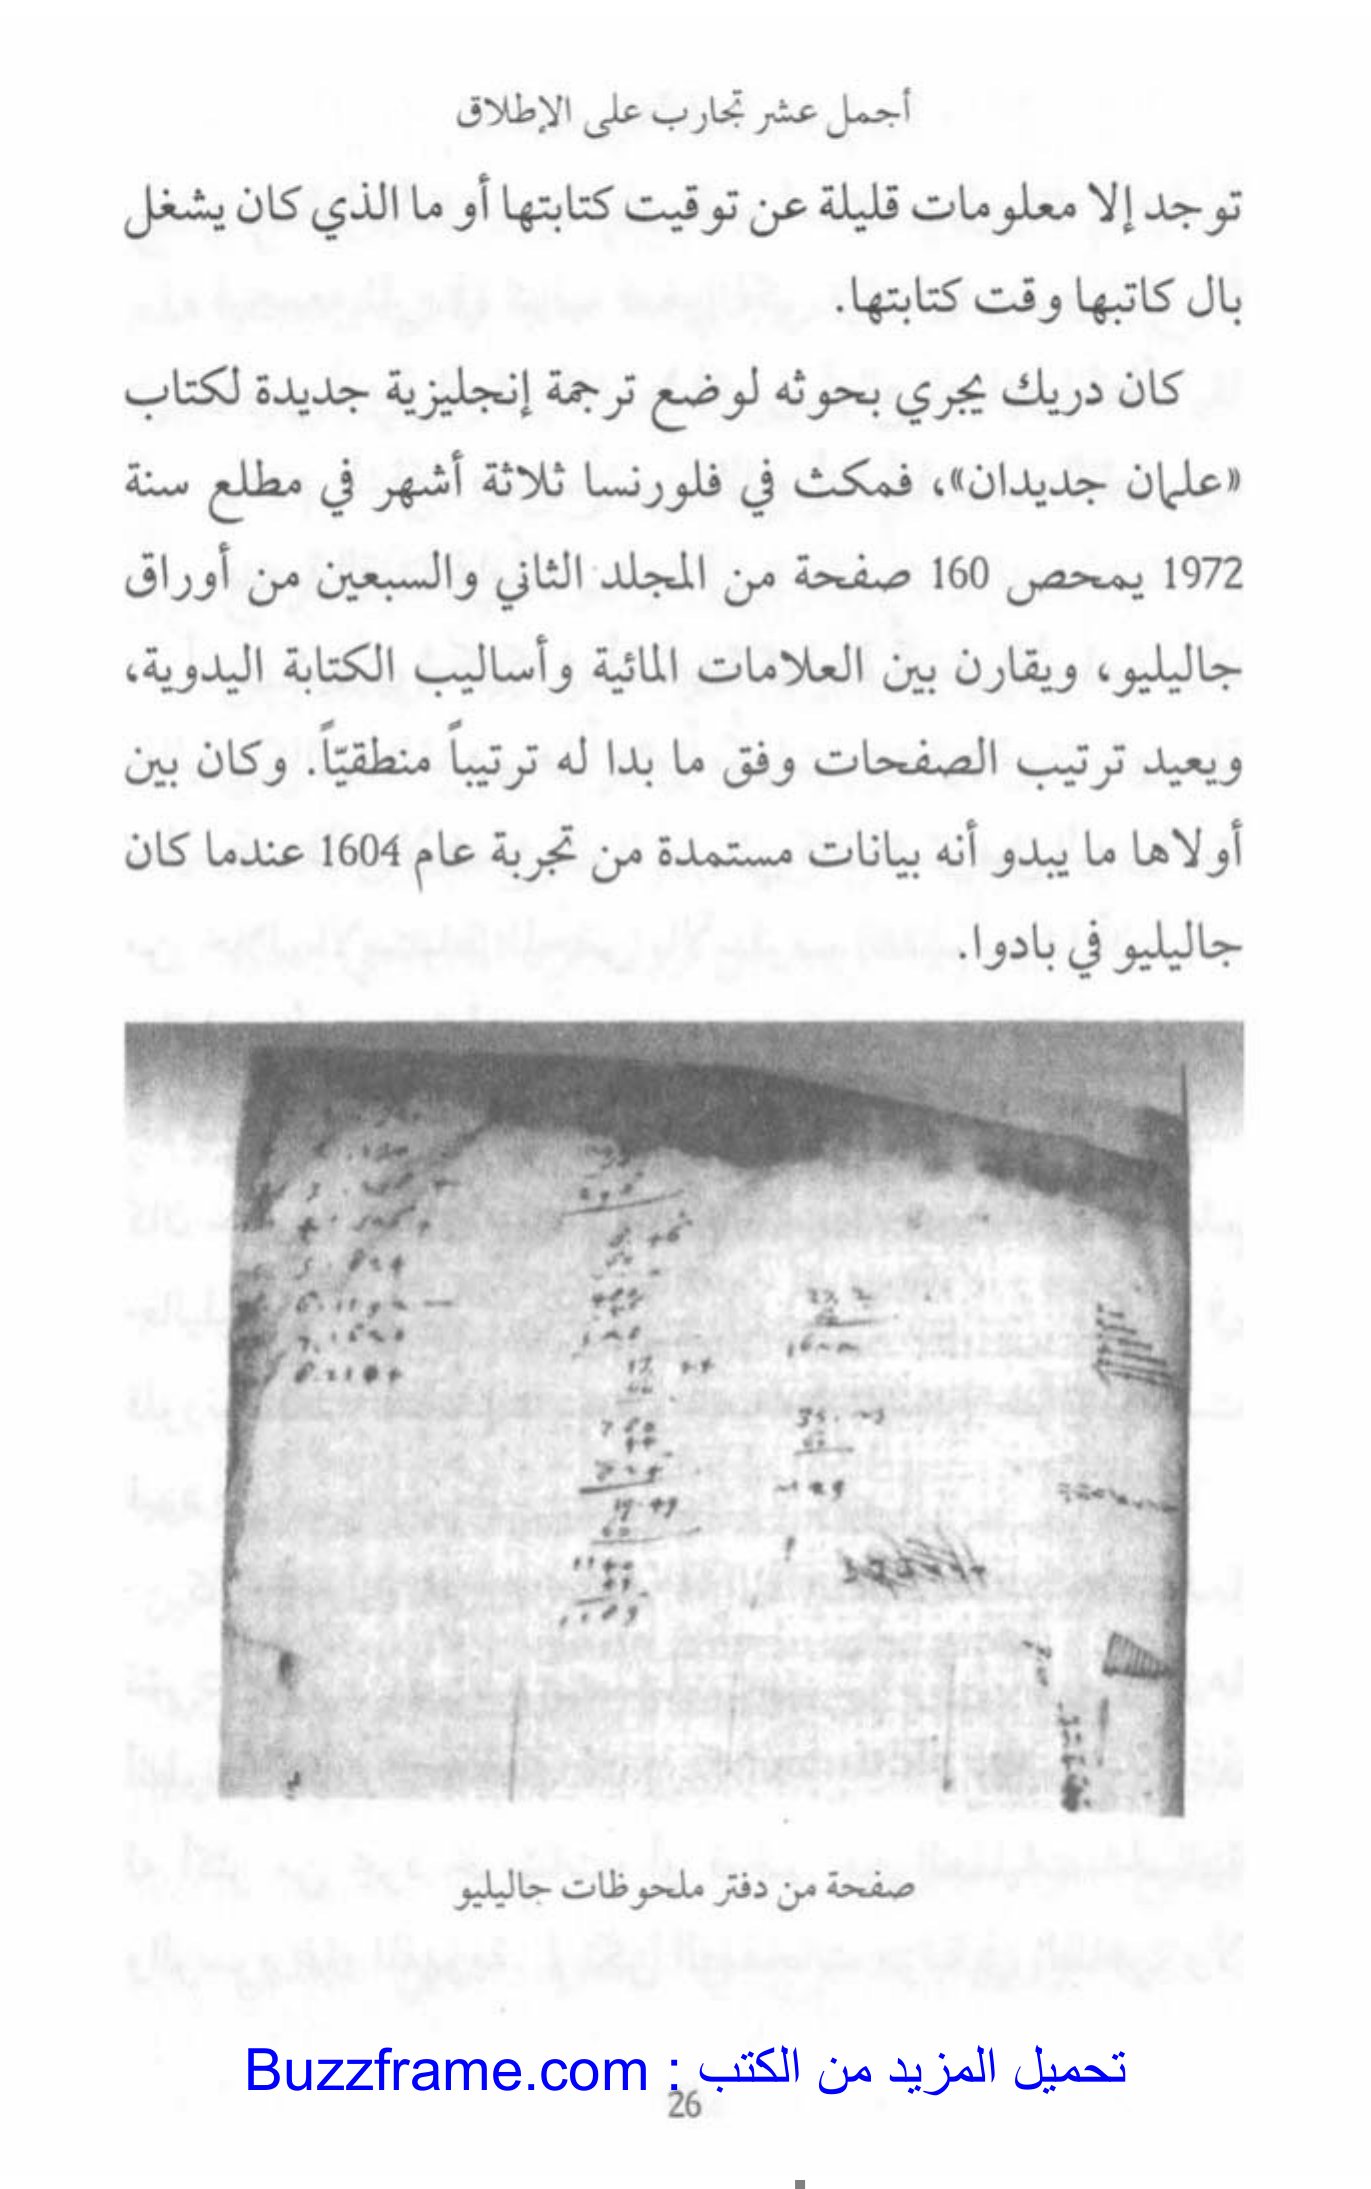 أجمل عشر تجارب على الإطلاق
توجد إلا معلومات قليلة عن توقيت كتابتها أو ما الذي كان يشغل
بال كاتبها وقت كتابتها.
كان دريك يجري بحوثه لوضع ترجمة إنجليزية جديدة لكتاب
«علمان جديدان»، فمكث في فلورنسا ثلاثة أشهر في مطلع سنة
1972 يمحص 160 صفحة من المجلد الثاني والسبعين من أوراق
جاليليو، ويقارن بين العلامات المائية وأساليب الكتابة اليدوية،
ويعيد ترتيب الصفحات وفق ما بدا له ترتيباً منطقيّاً. وكان بين
أولاها ما يبدو أنه بيانات مستمدة من تجربة عام 1604 عندما كان
جاليليو في بادوا.
صفحة من دفتر ملحوظات جاليليو
تحميل المزيد من الكتب : Buzzframe.com
26